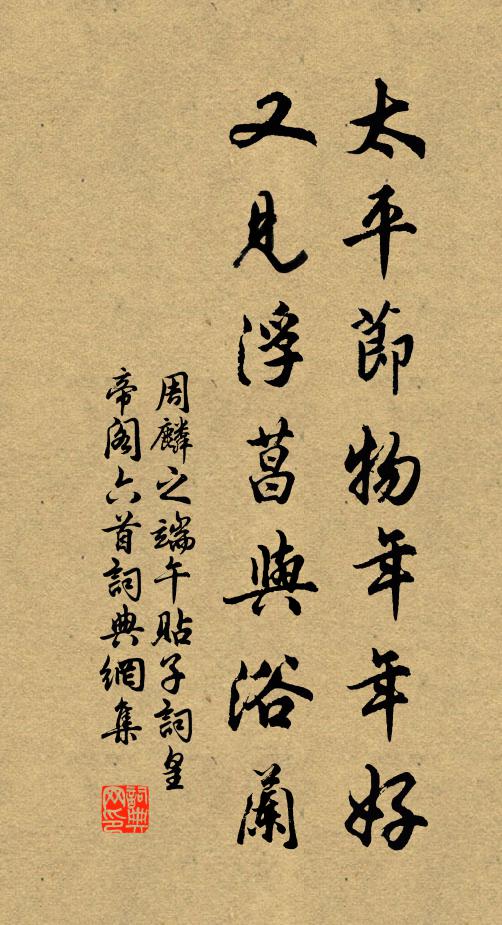 太平節物年年好
又見浮菖與浴蘭
周麟之端午貼子詞皇
帝閣六首詞典網集
詞典網印